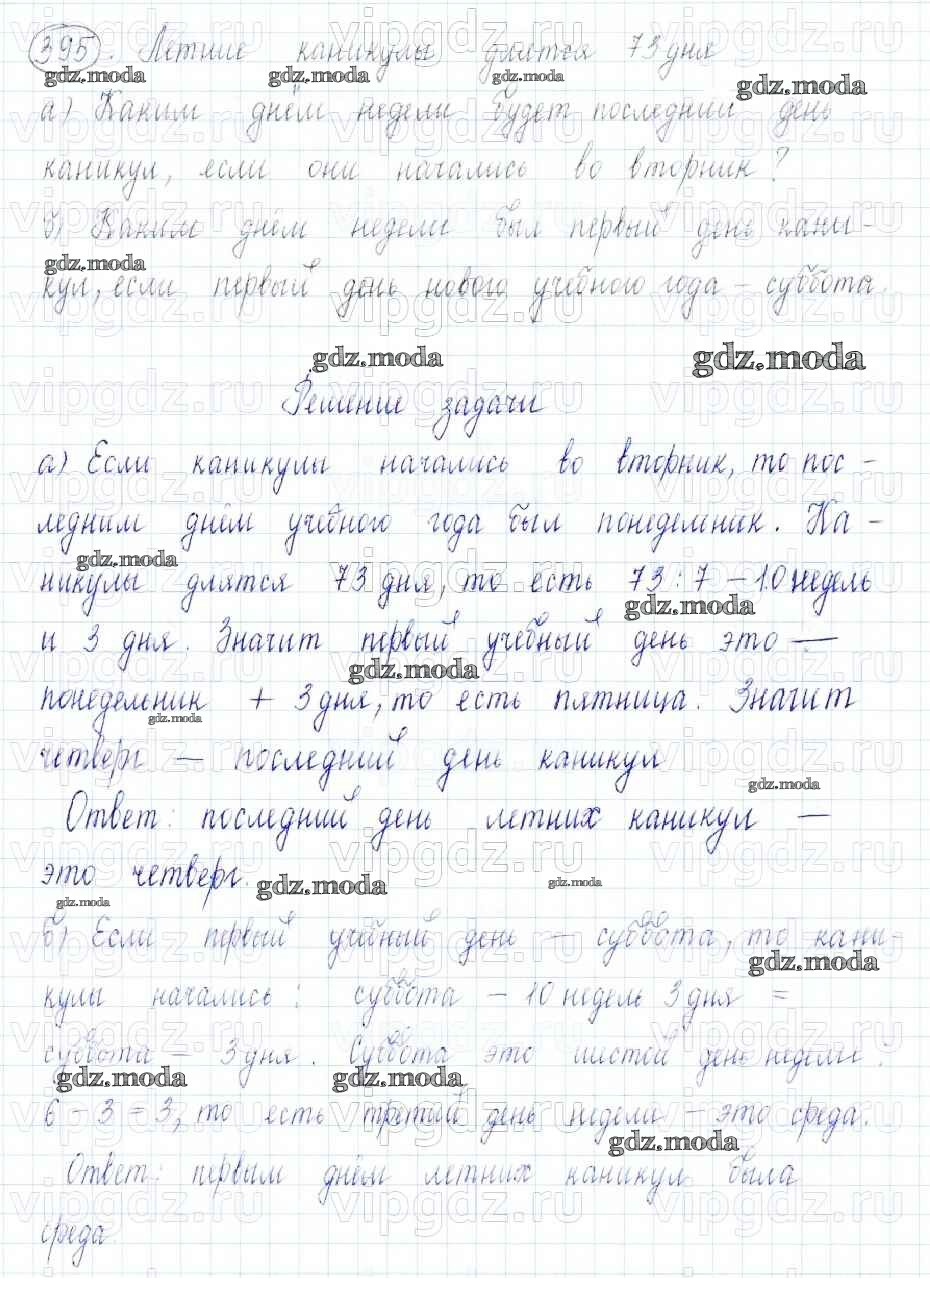 395. Летние каникулы длятся 73 дня
а) Каким днём недели будет последний день
каникул, если они начались во вторник?
б) Каким днём недели был первый день кани-
кул, если первый день нового учебного года - суббота.
Решение задачи
а) Если каникулы начались во вторник, то пос-
ледним днём учебного года был понедельник. Ка-
никулы длятся 73 дня, то есть 73 : 7 - 10 недель
и 3 дня. Значит первый учебный день это —
понедельник + 3 дня, то есть пятница. Значит
четверг — последний день каникул
Ответ: последний день летних каникул —
это четверг.
б) Если первый учебный день - суббота, то кани-
кулы начались: суббота - 10 недель 3 дня =
суббота - 3 дня. Суббота это шестой день недели.
6 - 3 = 3, то есть третий день недели - это среда.
Ответ: первым днём летних каникул была
среда.